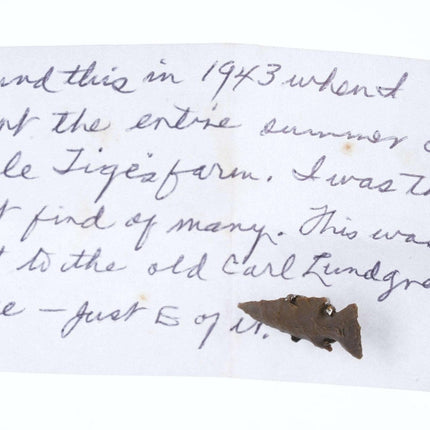 und this in 1943 when I
nt the entire summer
le Tige's farm. I was th
t find of many. This was
t to the old Carl Lundgre
e - just E of it.